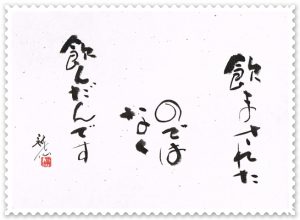 飲まされた
のでは
なく
飲んだんです